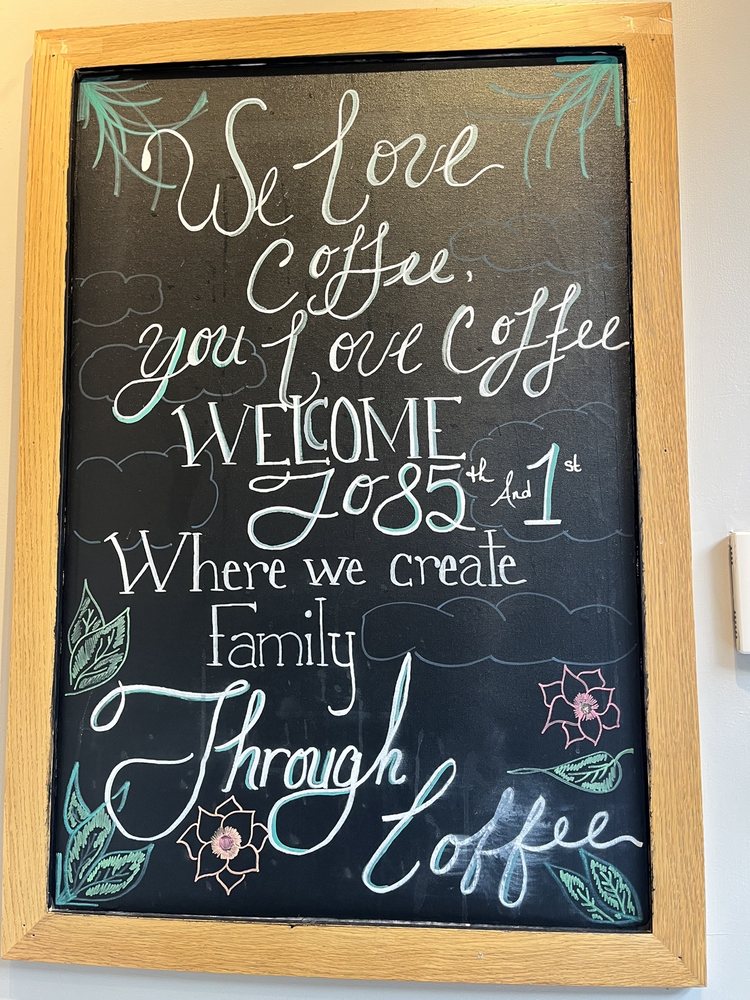 We love
Coffee,
you Love Coffee
WELCOME
To 85th And 1st
Where we create
Family
Through
Coffee